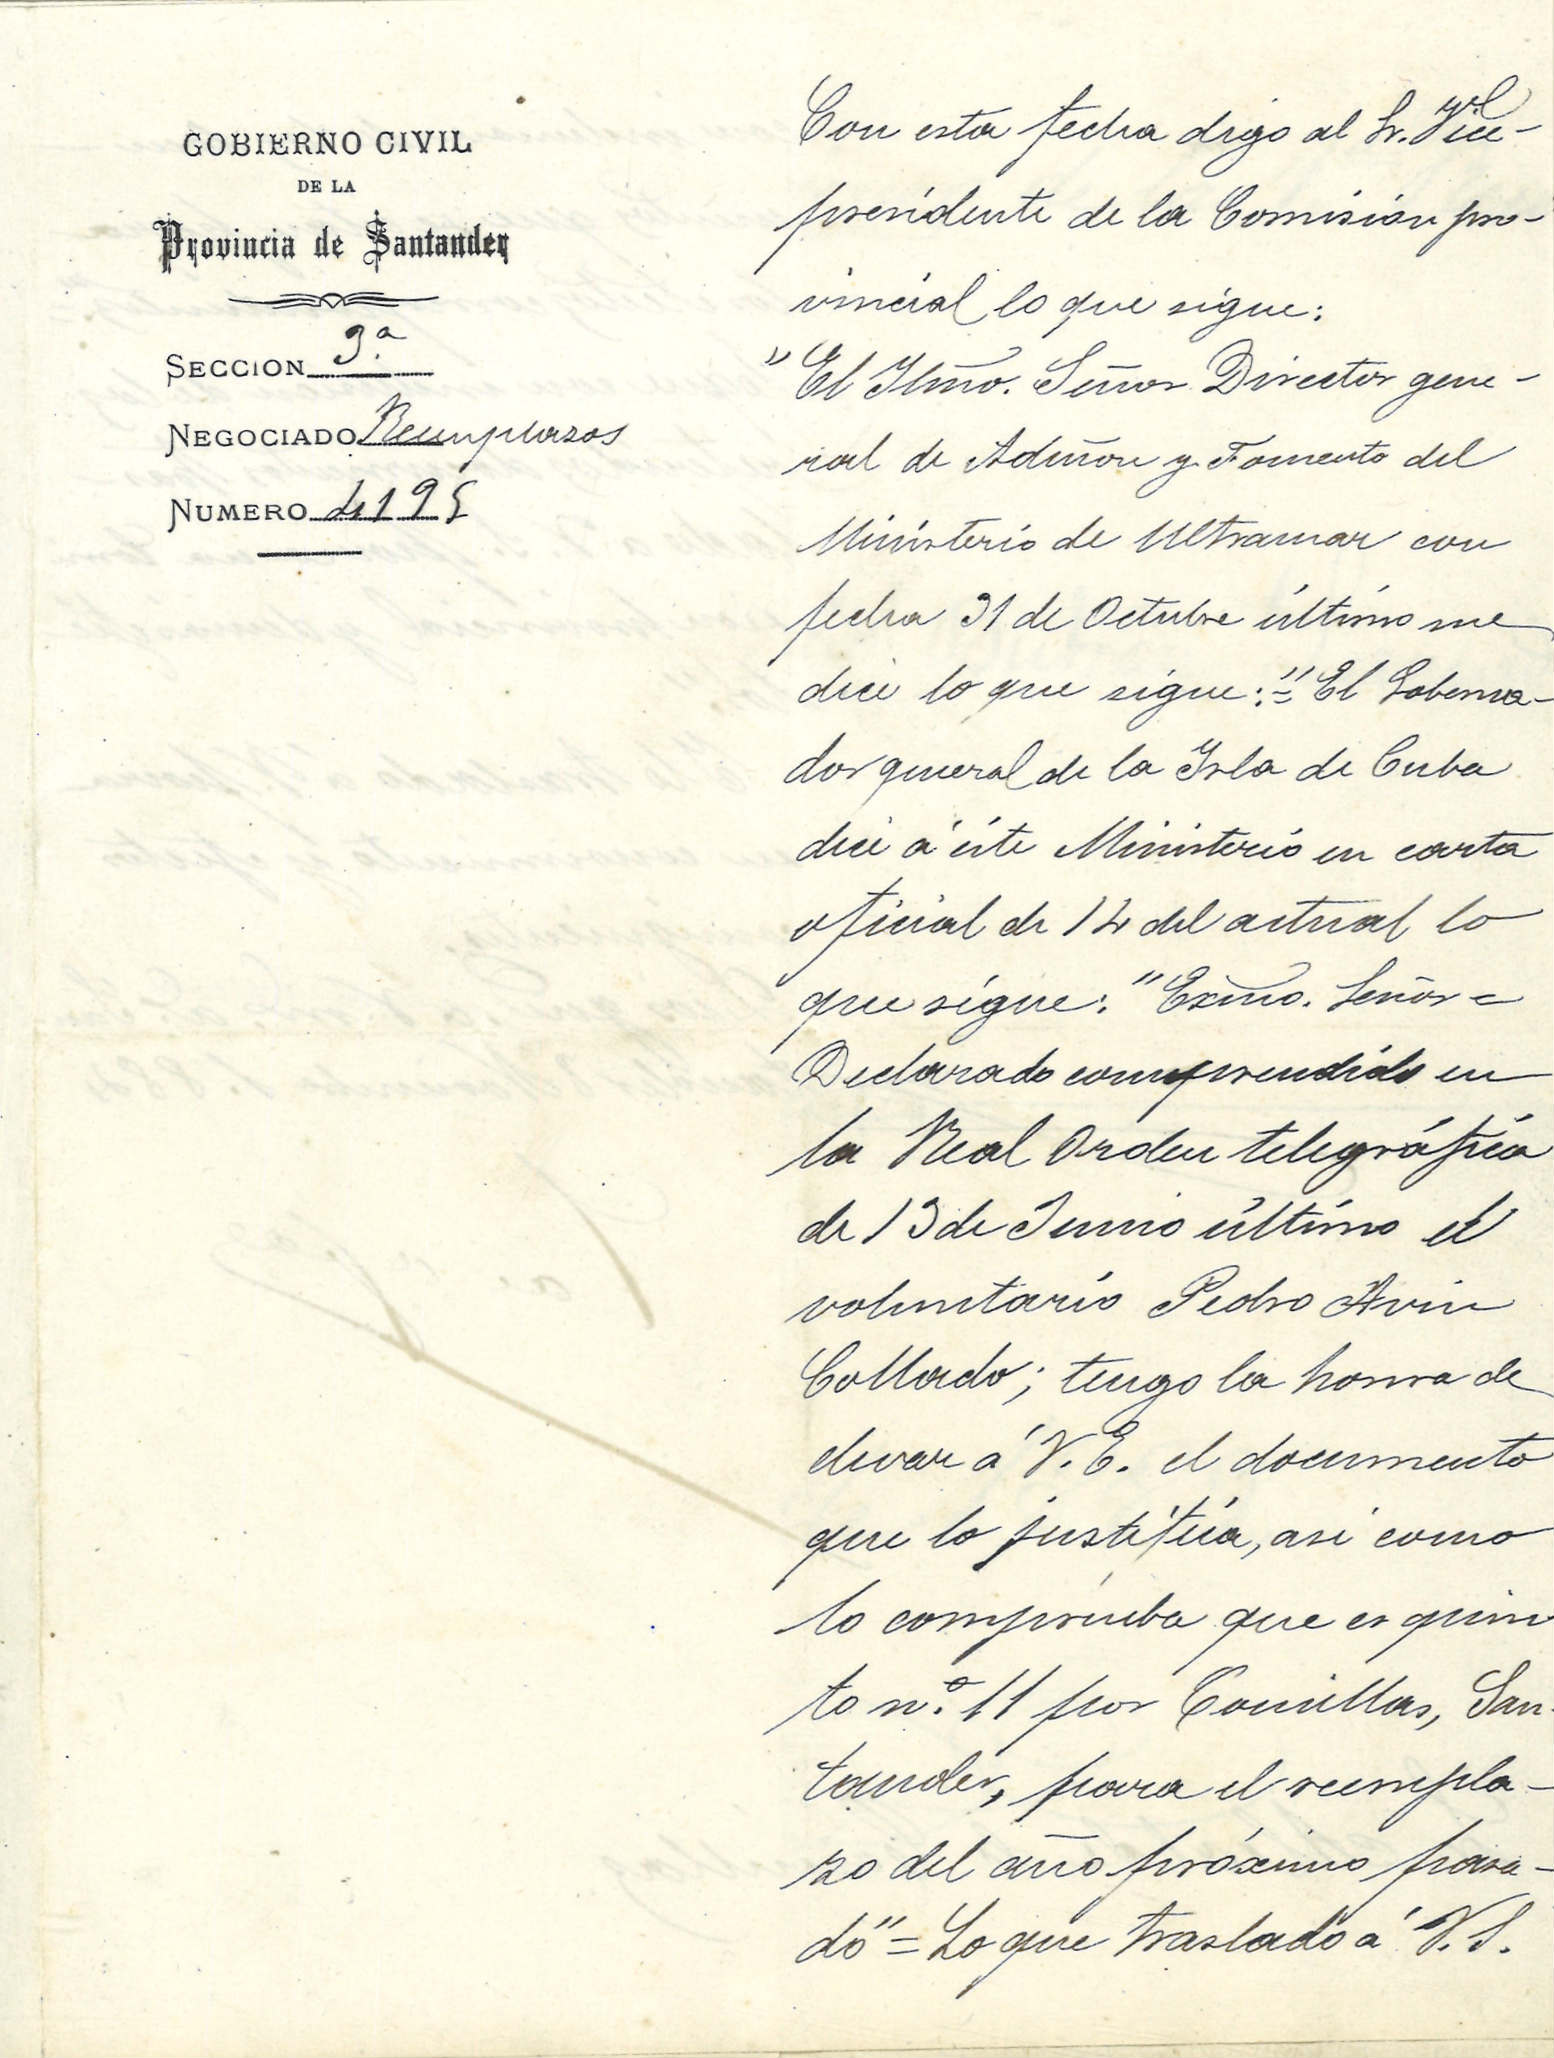 GOBIERNO CIVIL
DE LA
Provincia de Santander
SECCION 3.a
NEGOCIADO Reemplazos
NUMERO 4195
Con esta fecha digo al Sr. Vice-
presidente de la Comisión pro-
vincial lo que sigue:
"El Iltmo. Señor Director gene-
ral de Admón y Fomento del
Ministerio de Ultramar con
fecha 31 de Octubre último me
dice lo que sigue:="El Goberna-
dor general de la Isla de Cuba
dice á éste Ministerio en carta
oficial de 14 del actual lo
que sigue: "Excmo. Señor=
Declarado comprendido en
la Real Orden telegráfica
de 13 de Junio último el
voluntario Pedro Avin
Collado; tengo la honra de
elevar á V.E. el documento
que lo justifica, asi como
lo comprueba que es quin
to n.º 11 por Comillas, San-
tander, para el reempla-
zo del año próximo pasa-
do"=Lo que traslado á V.S.